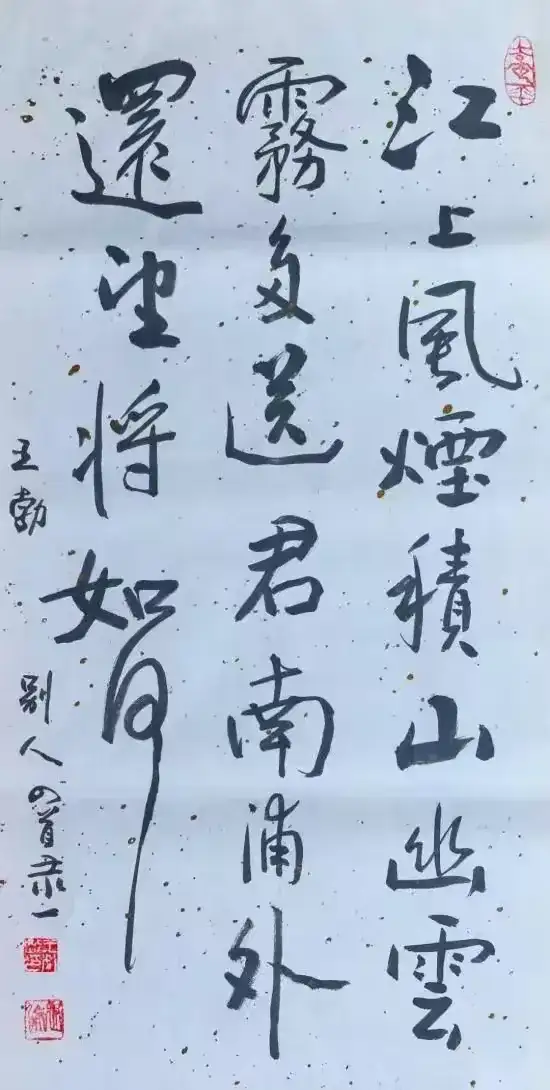 江上風煙積山幽雲
霧多送君南浦外
還望将如何
王勃 别人四首录一